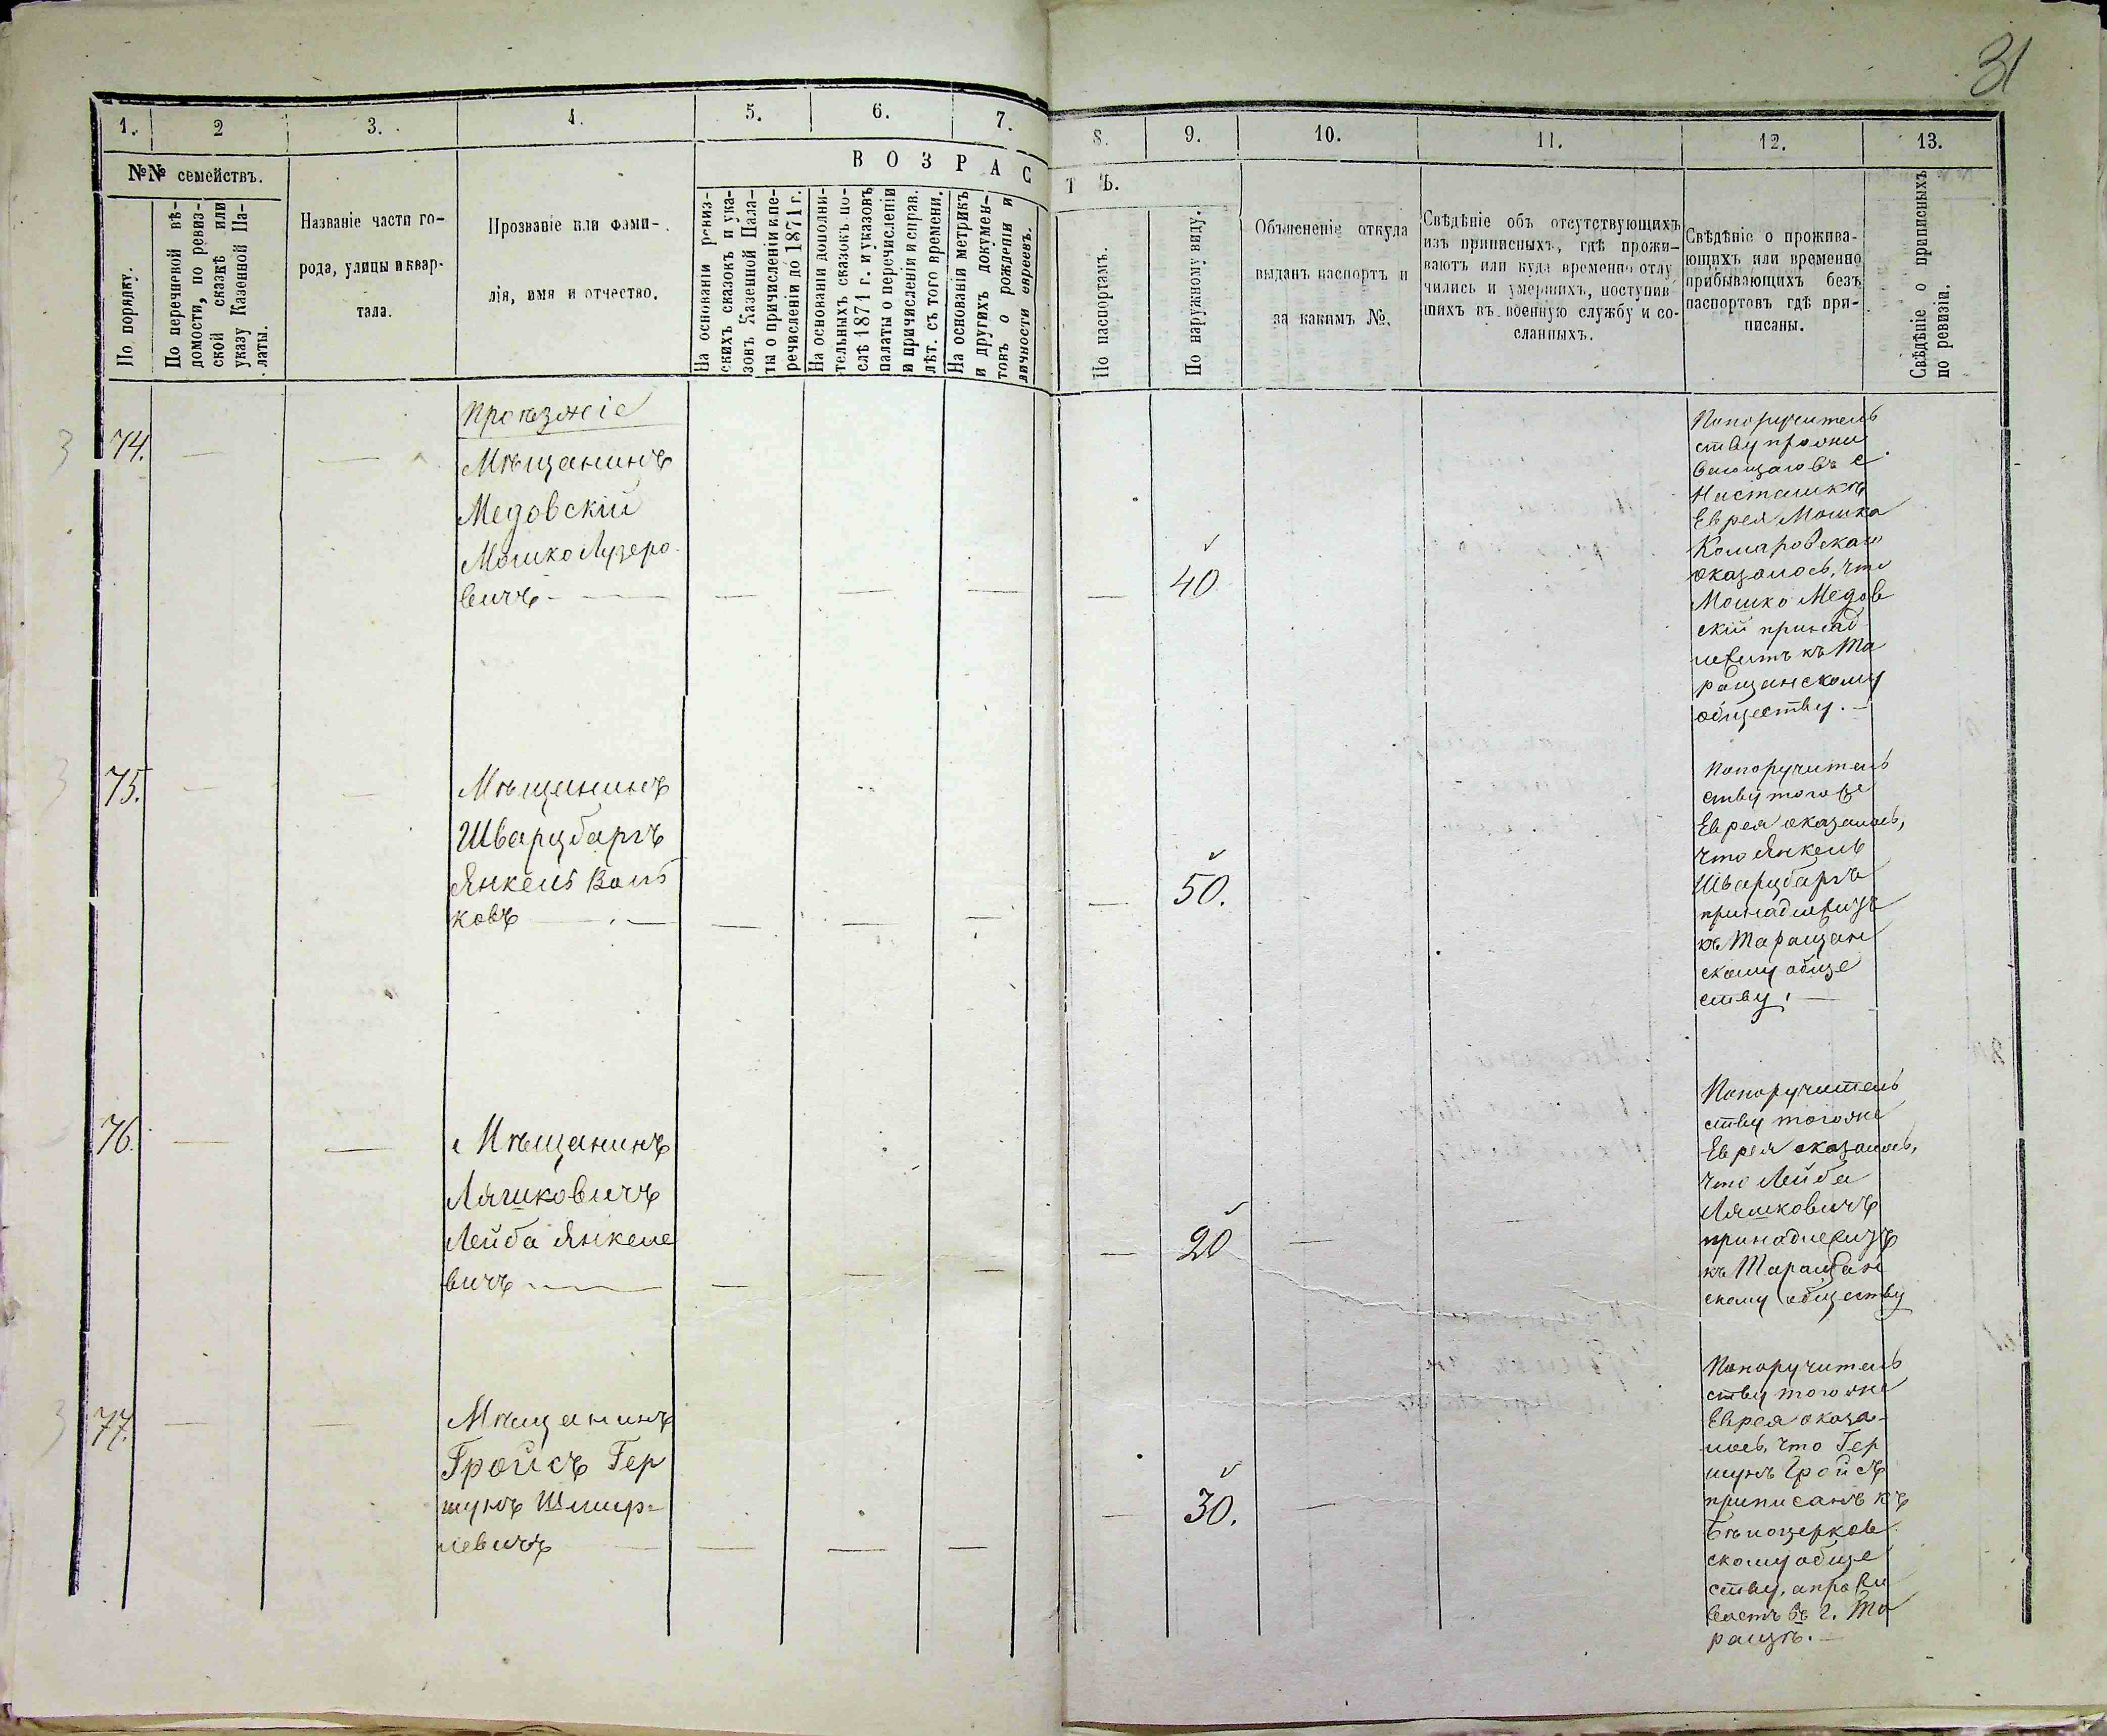 31
1. 2 3. 4. 5. 6. 7. 8. 9. 10. 11. 12. 13.
№№ семействъ.
По порядку.
По перечневой вѣ-
домости, по ревиз-
ской сказкѣ или
указу Казенной Па-
латы.
Названіе части го-
рода, улицы и квар-
тала.
Прозваніе или фами-
лія, имя и отчество.
ВОЗРАСТЪ.
На основаніи ревиз-
скихъ сказокъ и ука-
зовъ Казенной Пала-
ты о причисленіи и пе-
речисленіи до 1871 г.
На основаніи дополни-
тельныхъ сказокъ по-
слѣ 1871 г. и указовъ
палаты о перечисленіи
и причисленіи и справ.
лѣт. съ того времени.
На основаніи метрикъ
и другихъ докумен-
товъ о рожденіи и
личности евреевъ.
По паспортамъ.
По наружному виду.
Объясненіе откуда
выданъ паспортъ и
за какимъ №.
Свѣдѣніе объ отсутствующихъ
изъ приписныхъ, гдѣ прожи-
ваютъ или куда временно отлу
чились и умершихъ, поступив
шихъ въ военную службу и со-
сланныхъ.
Свѣдѣніе о прожива-
ющихъ или временно
прибывающихъ безъ
паспортовъ гдѣ при-
писаны.
Свѣдѣніе о приписныхъ
по ревизіи.
Проѣзжіе
3 74. — —
Мѣщанинъ
Медовскій
Мошко Лузеро
вичъ — — — — — 40
По поручитель
ству прожи
вающаго въ с.
Насташкѣ
Еврея Мошка
Комаровскаго
оказалось, что
Мошко Медов
скій принад
лежитъ къ Та
ращанскому
обществу. —
3 75. — —
Мѣщанинъ
Шварцбаргъ
Янкель Воль
ковъ — — — — — 50.
По поручитель
ству того же
Еврея оказалось,
что Янкель
Шварцбаргъ
принадлежитъ
къ Таращан
скому обще
ству. —
76. — —
Мѣщанинъ
Ляшковичъ
Лейба Янкеле
вичъ — — — — — 20 —
По поручитель
ству того же
Еврея оказалось,
что Лейба
Ляшковичъ
принадлежитъ
къ Таращан
скому обществу
3 77. — —
Мѣщанинъ
Гройсъ Гер
шунъ Шмир-
левичъ — — — — 30. —
По поручитель
ству того же
Еврея оказа-
лось, что Гер
шунъ Гройсъ
приписанъ къ
Бѣлоцерков
скому обще
ству, а прожи
ваетъ въ г. Та
ращѣ. —